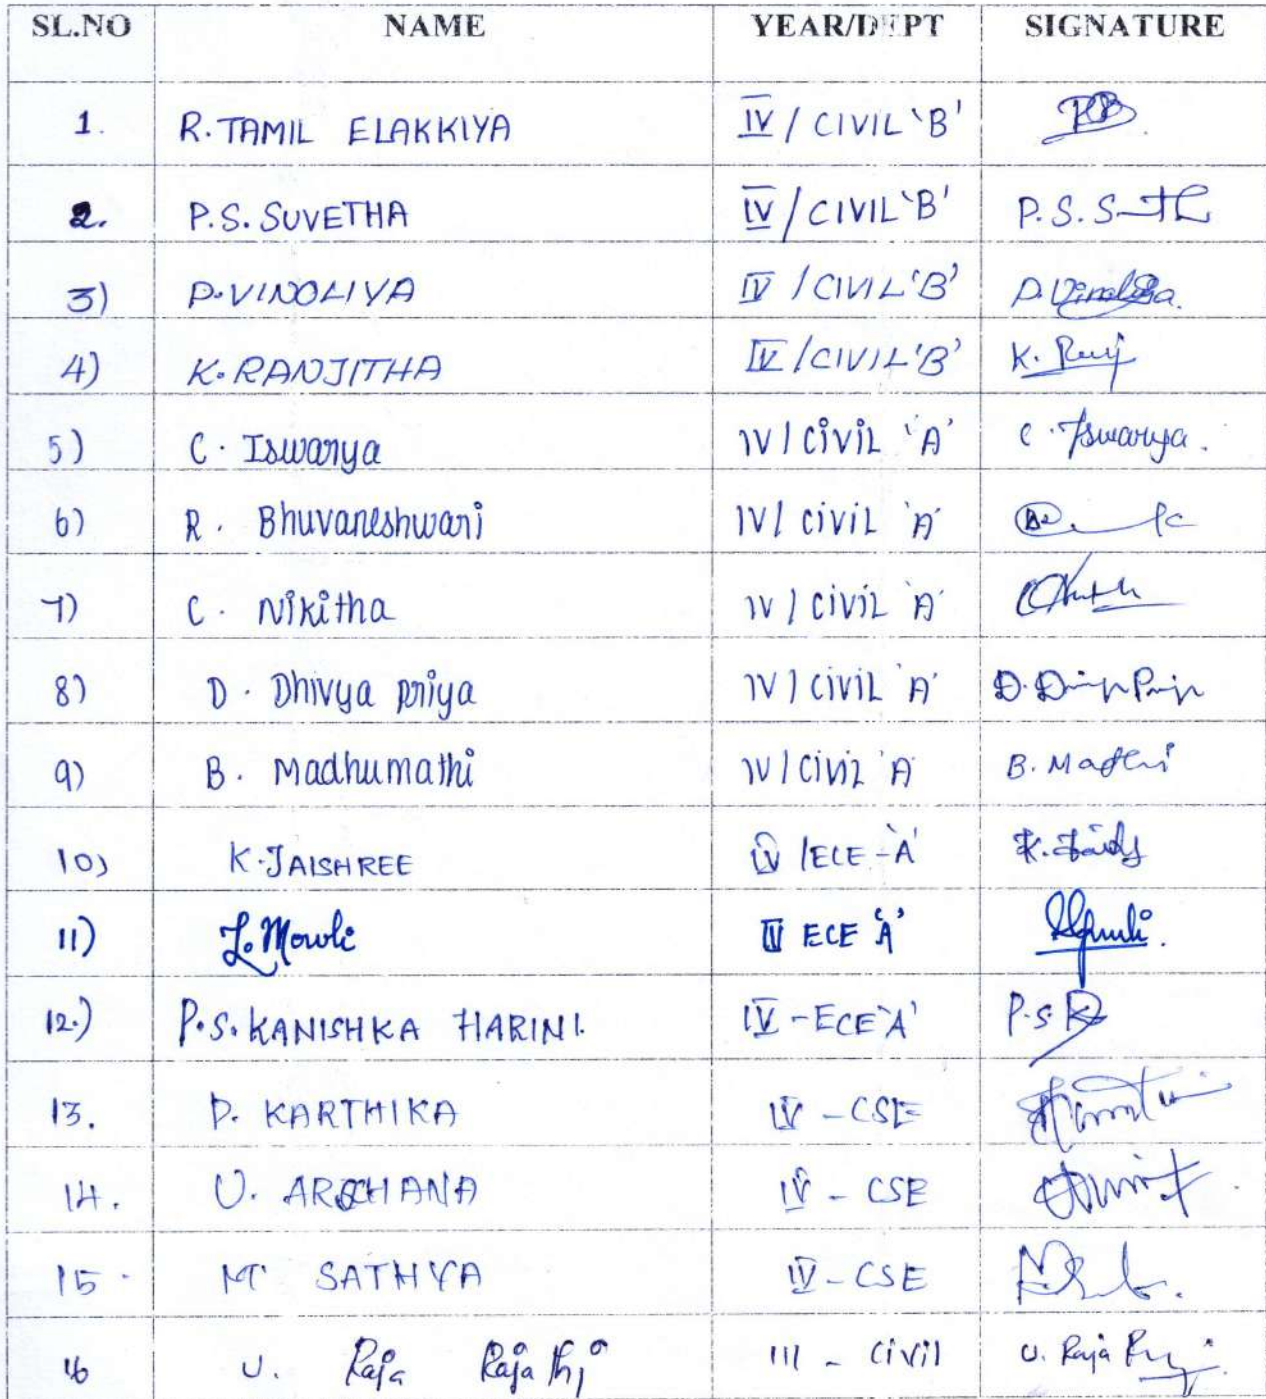 SL.NO NAME YEAR/DEPT SIGNATURE
1. R.TAMIL ELAKKIYA IV / CIVIL 'B'
2. P.S. SUVETHA IV / CIVIL 'B' P.S.
3) P.VINOLIYA IV / CIVIL 'B'
4) K.RANJITHA IV / CIVIL 'B' K.
5) C. Iswarya IV / civil 'A' C. Iswarya.
6) R. Bhuvaneshwari IV / civil 'A'
7) C. Nikitha IV / civil 'A'
8) D. Dhivya priya IV / civil 'A'
9) B. Madhumathi IV / civil 'A' B. Madhi
10) K.JAISHREE IV / ECE - 'A' K.
11) IV ECE 'A'
12.) P.S.KANISHKA HARINI. IV - ECE 'A' P.S.K
13. P. KARTHIKA IV - CSE
14. U. ARCHANA IV - CSE
15. M SATHYA IV - CSE
16 U. Raja III - civil U. Raja